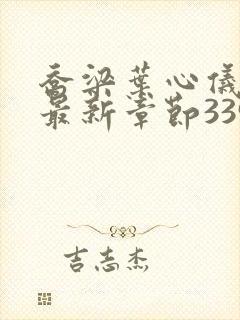 乔梁叶心仪
最新章节339
吉志杰